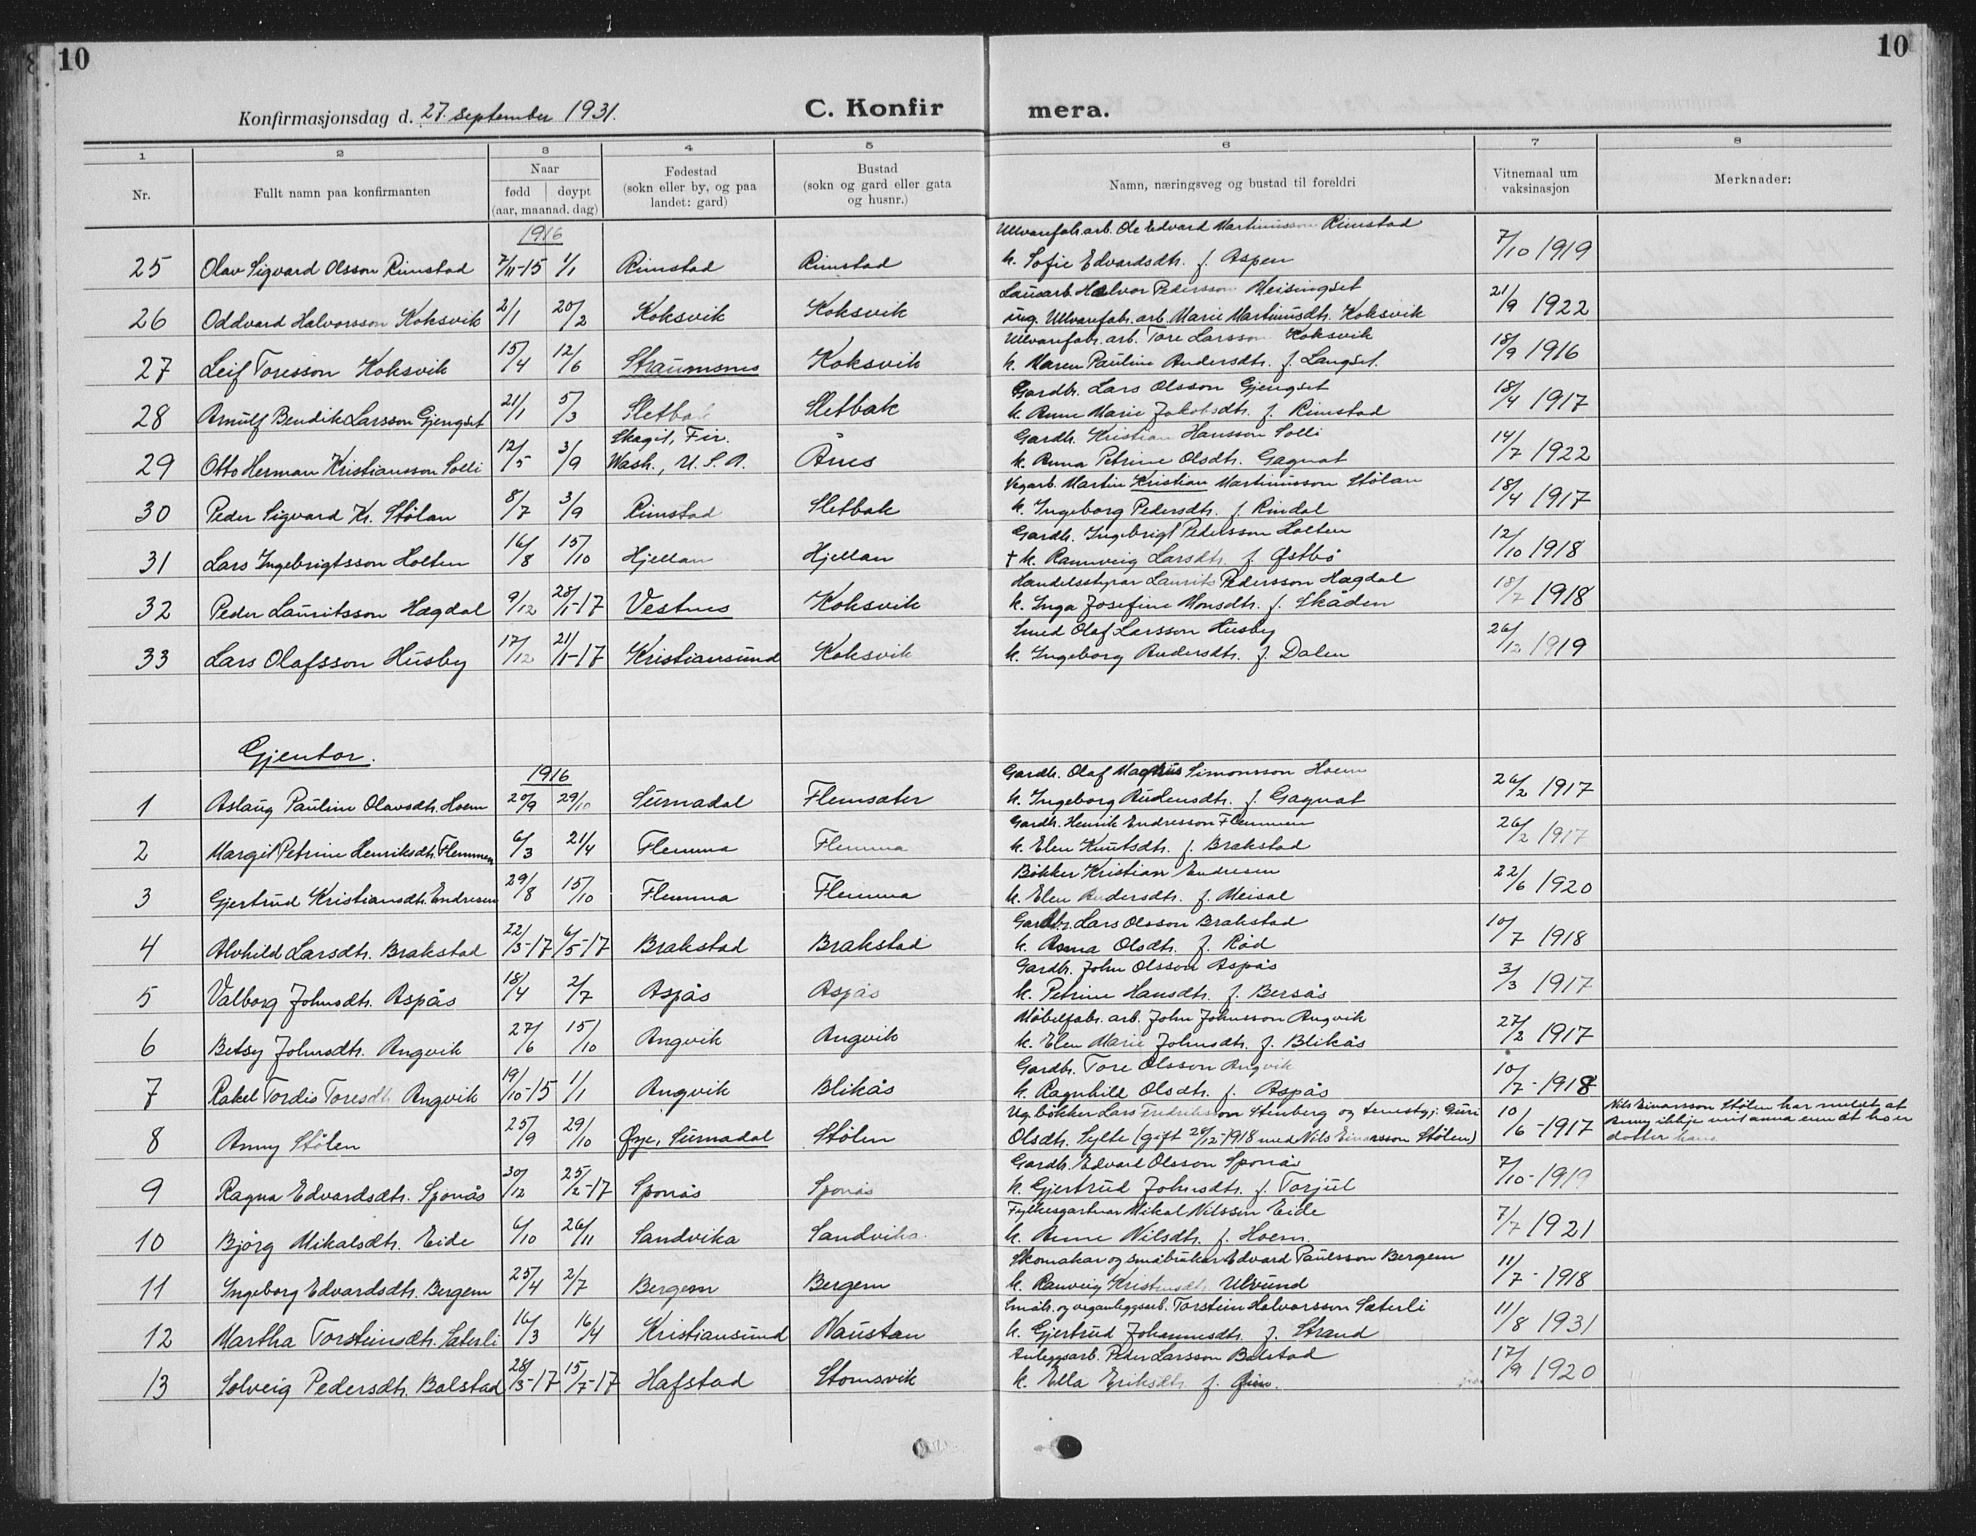 10
10
Konfirmasjonsdag d. 27. september 1931.
C. Konfir mera.
1 2 3 4 5 6 7 8
Nr. Fullt namn paa konfirmanten Naar født døypt (aar, maanad. dag) Fødestad (sokn eller by, og paa landet: gard) Bustad (sokn og gard eller gata og husnr.) Namn, næringsveg og bustad til foreldri Vitnemaal um vaksinasjon Merknader:
1916
Ullvarefab.arb. Ole Edvard Martinusson Rimstad
25 Olav Sigvard Olsson Rimstad 7/11-15 1/1 Rimstad Rimstad k. Sofie Edvardsdtr. f. Aspen 7/10 1919
Lausarb. Halvor Pedersson Meisingset
26 Oddvard Halvorsson Koksvik 2/1 20/2 Koksvik Koksvik ug. Ullvarefab. arb. Marie Martinusdtr. Koksvik 21/9 1922
Ullvarefab. arb. Tore Larsson Koksvik
27 Leif Toresson Koksvik 15/4 12/6 Straumsnes Koksvik k. Maren Pauline Andersdtr. f. Langset. 18/9 1916
Gardbr. Lars Olsson Gjengset
28 Arnulf Bendik Larsson Gjengset 21/1 5/3 Sletbak Sletbak k. Anne Marie Jakobsdtr. f. Rimstad 18/4 1917
Gardbr. Kristian Hansson Solli
29 Otto Herman Kristiansson Solli 12/5 3/9 Skagit, Fir. Wash., U.S.A. Ånes k. Anna Petrine Olsdtr. Gagnat 14/7 1922
Vegarb. Martin Kristian Martinusson Stølan
30 Peder Sigvard Kr. Stølan 8/7 3/9 Rimstad Sletbak k. Ingeborg Pedersdtr. f. Rindal 18/4 1917
Gardbr. Ingebrigt Pedersson Holten
31 Lars Ingebrigtsson Holten 16/8 15/10 Hjellan Hjellan † k. Rannveig Larsdtr. f. Østbø 12/10 1918
Handelsstyrar Laurits Pedersson Hagdal
32 Peder Lauritsson Hagdal 9/12 28/1-17 Vestnes Koksvik k. Inga Josefine Monsdtr. f. Skåden 18/7 1918
Smed Olaf Larsson Husby
33 Lars Olafsson Husby 17/12 21/1-17 Kristiansund Koksvik k. Ingeborg Andersdtr. f. Dalen 26/12 1919
Gjentor.
1916
Gardbr. Olaf Magnus Simonsson Hoem
1 Aslaug Pauline Olavsdtr. Hoem 20/9 29/10 Surnadal Flemsæter k. Ingeborg Audensdtr. f. Gagnat 26/2 1917
Gardbr. Henrik Endresson Flemmen
2 Margit Petrine Henriksdtr. Flemmen 6/3 21/4 Flemma Flemma k. Elen Knutsdtr. f. Brakstad 26/2 1917
Bøkker Kristian Endresen
3 Gjertrud Kristiansdtr. Endresen 29/8 15/10 Flemma Flemma k. Elen Andersdtr. f. Meisal 22/6 1920
Gardbr. Lars Olsson Brakstad
4 Alvhild Larsdtr. Brakstad 22/3-17 6/5-17 Brakstad Brakstad k. Anna Olsdtr. f. Rød 10/7 1918
Gardbr. John Olsson Aspås
5 Valborg Johnsdtr. Aspås 18/4 2/7 Aspås Aspås k. Petrine Hansdtr. f. Bersås 3/3 1917
Møbelfabr. arb. John Johnsson Angvik
6 Betsy Johnsdtr. Angvik 27/6 15/10 Angvik Angvik k. Elen Marie Johnsdtr. f. Blikås 27/2 1917
Gardbr. Tore Olsson Angvik
7 Rakel Tordis Toresdtr. Angvik 19/10-15 1/1 Angvik Blikås k. Ragnhild Olsdtr. f. Aspås 10/7-1918
Ug. bøkker Lars Fredriksson Stenberg og tenestgj. Guri
8 Anny Stølen 25/9 29/10 Øye, Surnadal Stølen Olsdtr. Sylte (gift 26/12-1918 med Nils Einarsson Stølen) 10/6-1917 Nils Einarsson Stølen har meldt at Anny ikkje veit anna enn at ho er dotter hans.
Gardbr. Edvard Olsson Sponås
9 Ragna Edvardsdtr. Sponås 30/12 25/2-17 Sponås Sponås k. Gjertrud Johnsdtr. f. Torjul 7/10-1919
Fylkesgartnar Mikal Nilssen Eide
10 Bjørg Mikalsdtr. Eide 6/10 26/11 Sandvika Sandvika k. Anne Nilsdtr. f. Hoem. 7/7 1921
Skomakar og småbrukar Edvard Paulsson Bergem
11 Ingeborg Edvardsdtr. Bergem 25/4 2/7 Bergem Bergem k. Ranveig Kristensdtr. Ulvund 11/7-1918
Småbr. og veganleggsarb. Torstein Halvorsson Sæterli
12 Martha Torsteinsdtr. Sæterli 16/3 16/4 Kristiansund Naustan k. Gjertrud Johannesdtr. f. Strand 11/8 1931
Anleggsarb. Peder Larsson Bolstad
13 Solveig Pedersdtr. Bolstad 28/3-17 15/7-17 Hafstad Stomsvik k. Ella Eriksdtr. f. 17/9 1920